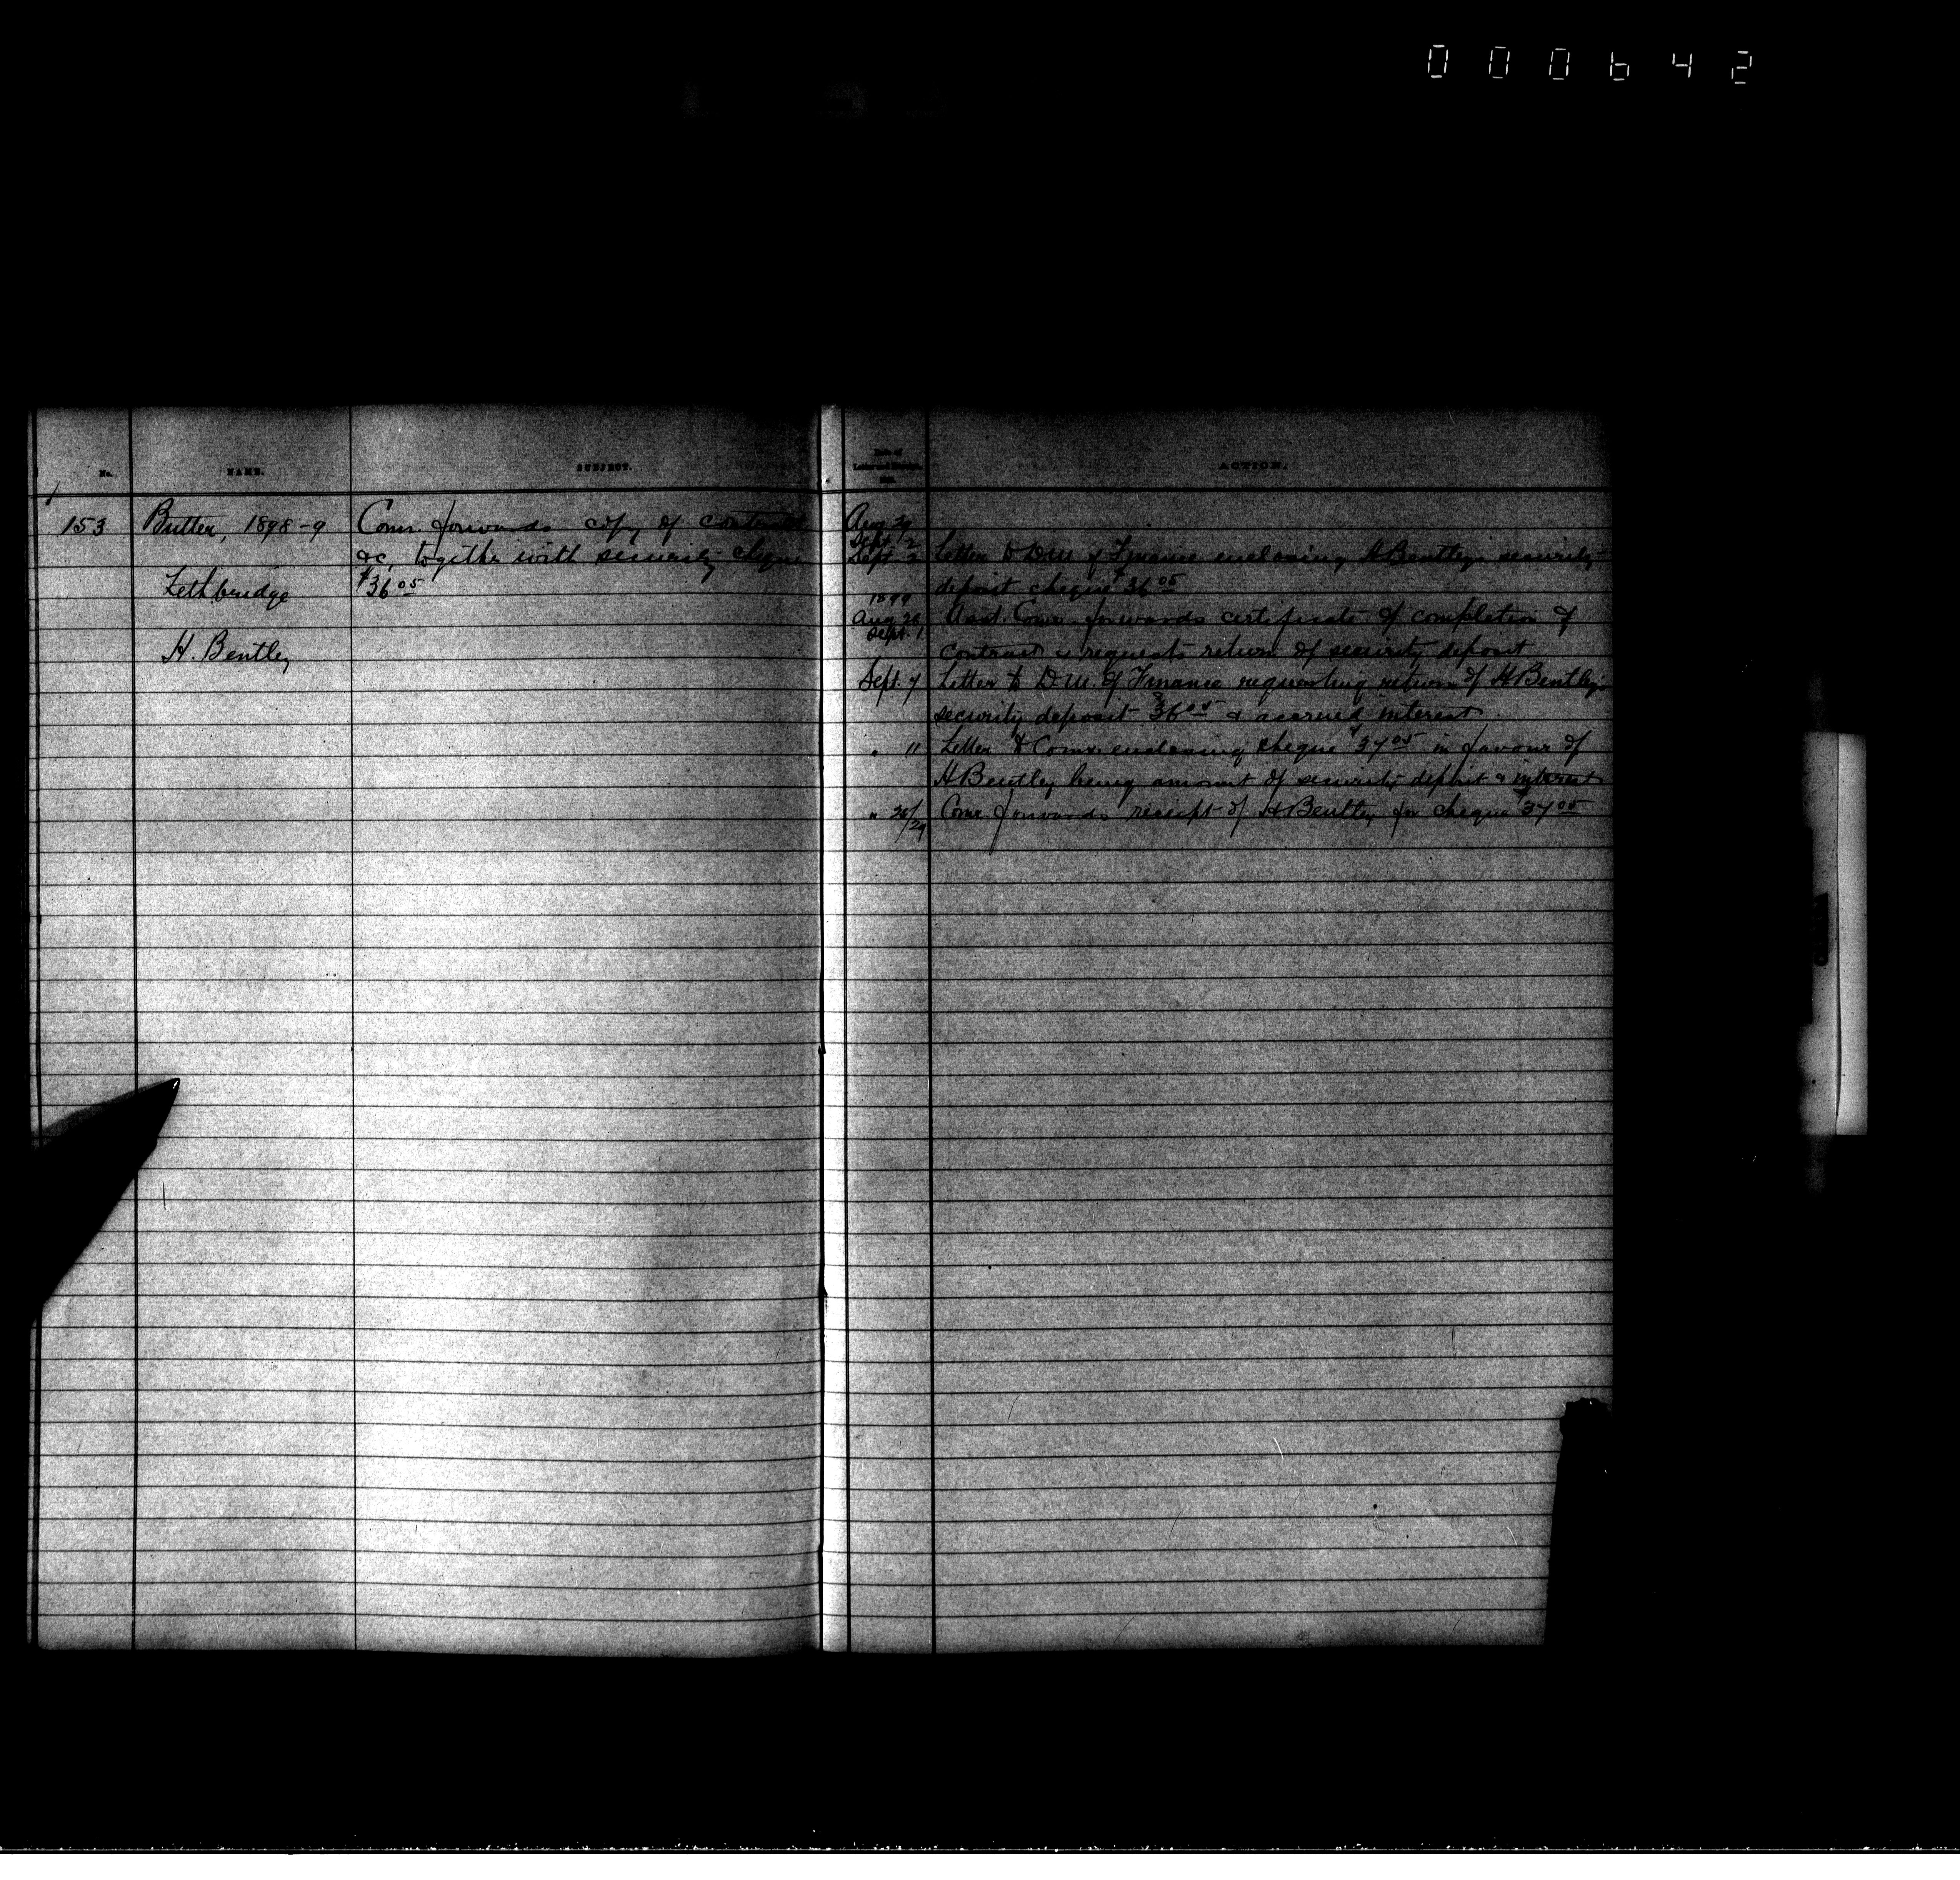 000642
No. NAME. SUBJECT.
153 Butter, 1898-9 Comr. forwards copy of contract
&c, together with security cheque
Lethbridge $36.05
H. Bentley
Date of
ACTION.
Aug 29
Sept. 2
Sept. 2 Letter to D.M. of Finance enclosing H Bentley's security
deposit cheque $36.05
1899
Aug 26 Asst. Comr. forwards certificate of completion of
Sept. 1
contract & requests return of security deposit
Sept. 7 Letter to D.M. of Finance requesting return of H Bentley's
security deposit $36.05 & accrued interest.
" 11 Letter to Comr. enclosing cheque $37.05 in favour of
H Bentley being amount of security deposit & interest
" 26/29 Comr. forwards receipt of H Bentley for cheque $37.05